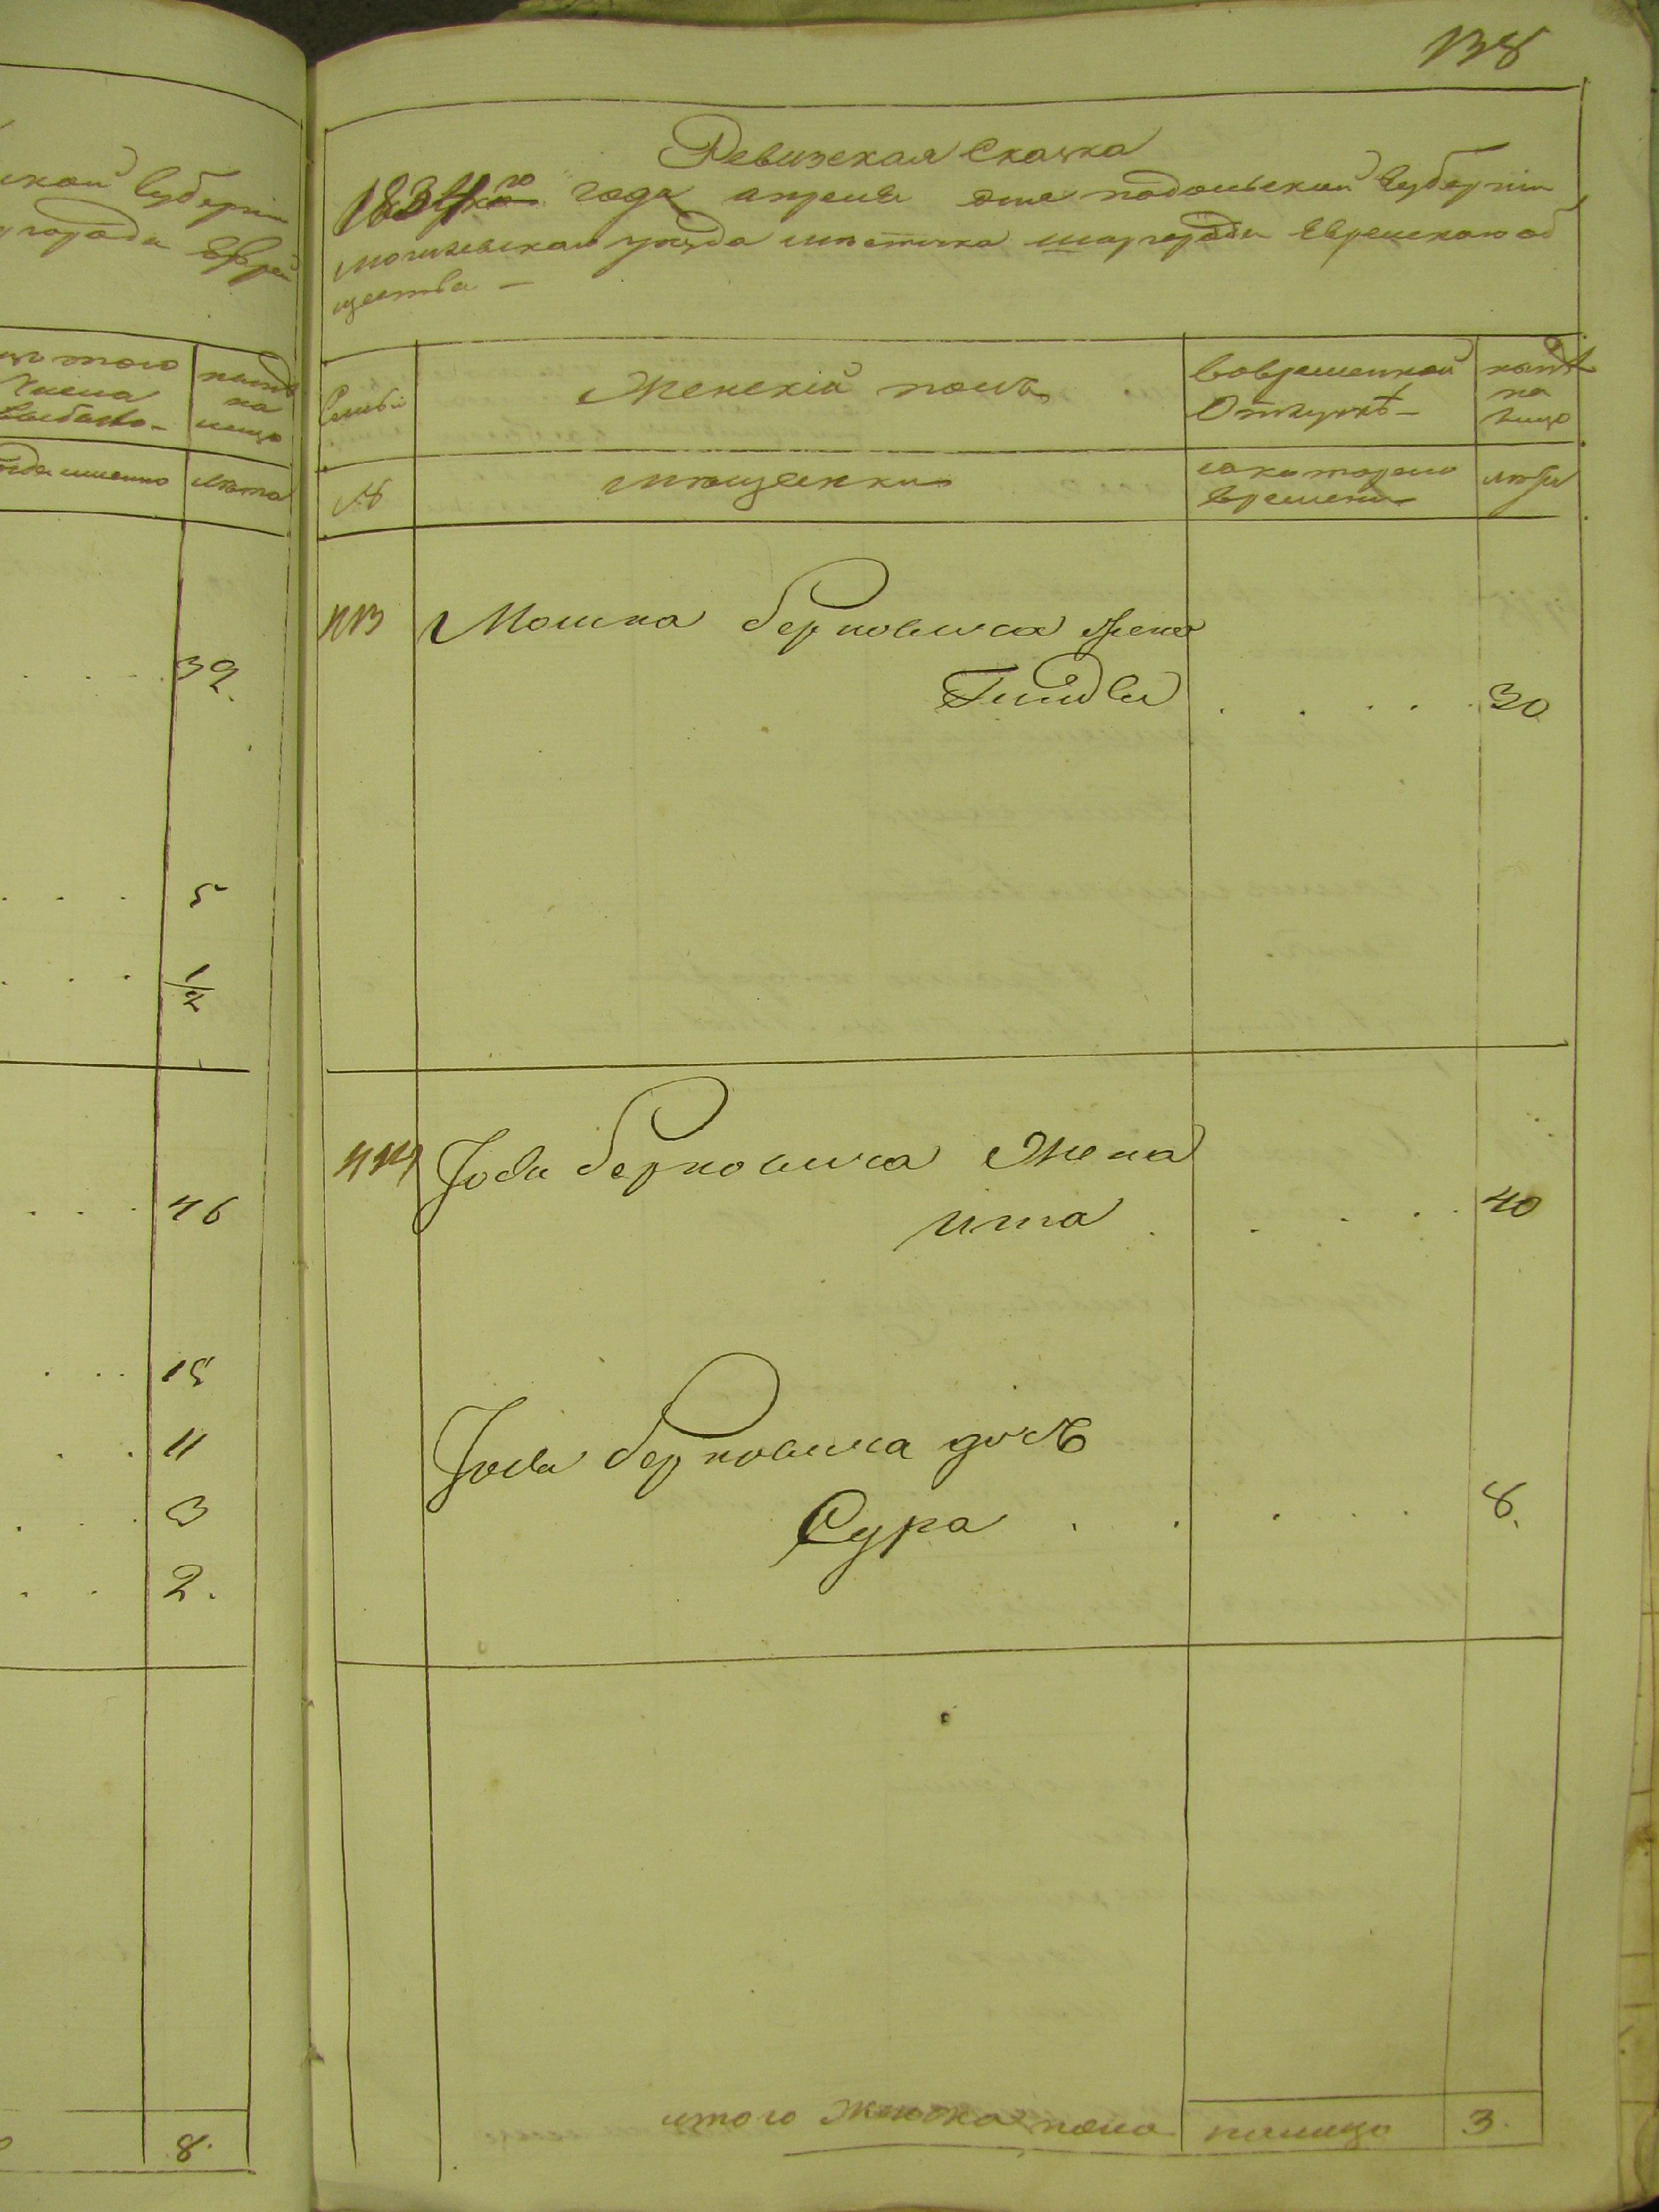 ской Губерніи
города Еврей
того
числа
выбыло
нынѣ
на
лицо
именно
Лѣта
32.
5
1/2
46
15
11
3
2.
8.
138
Ревизская Сказка
1834го года апреля дня подольской Губерніи
могилевскаго уезда местечка шаргорода Еврейскаго об
щества —
Семьи
Женскій полъ
Вовременной
Отлучкѣ —
нынѣ
на
лицо
№
мещанки
скотораго
времени
лѣта
113
Мошка берковича жена
30
114
Iося берковича Жена
ита . . . . . 40
Iося берковича дочь
Сура . . . . . 8.
итого женска пола налицо 3.